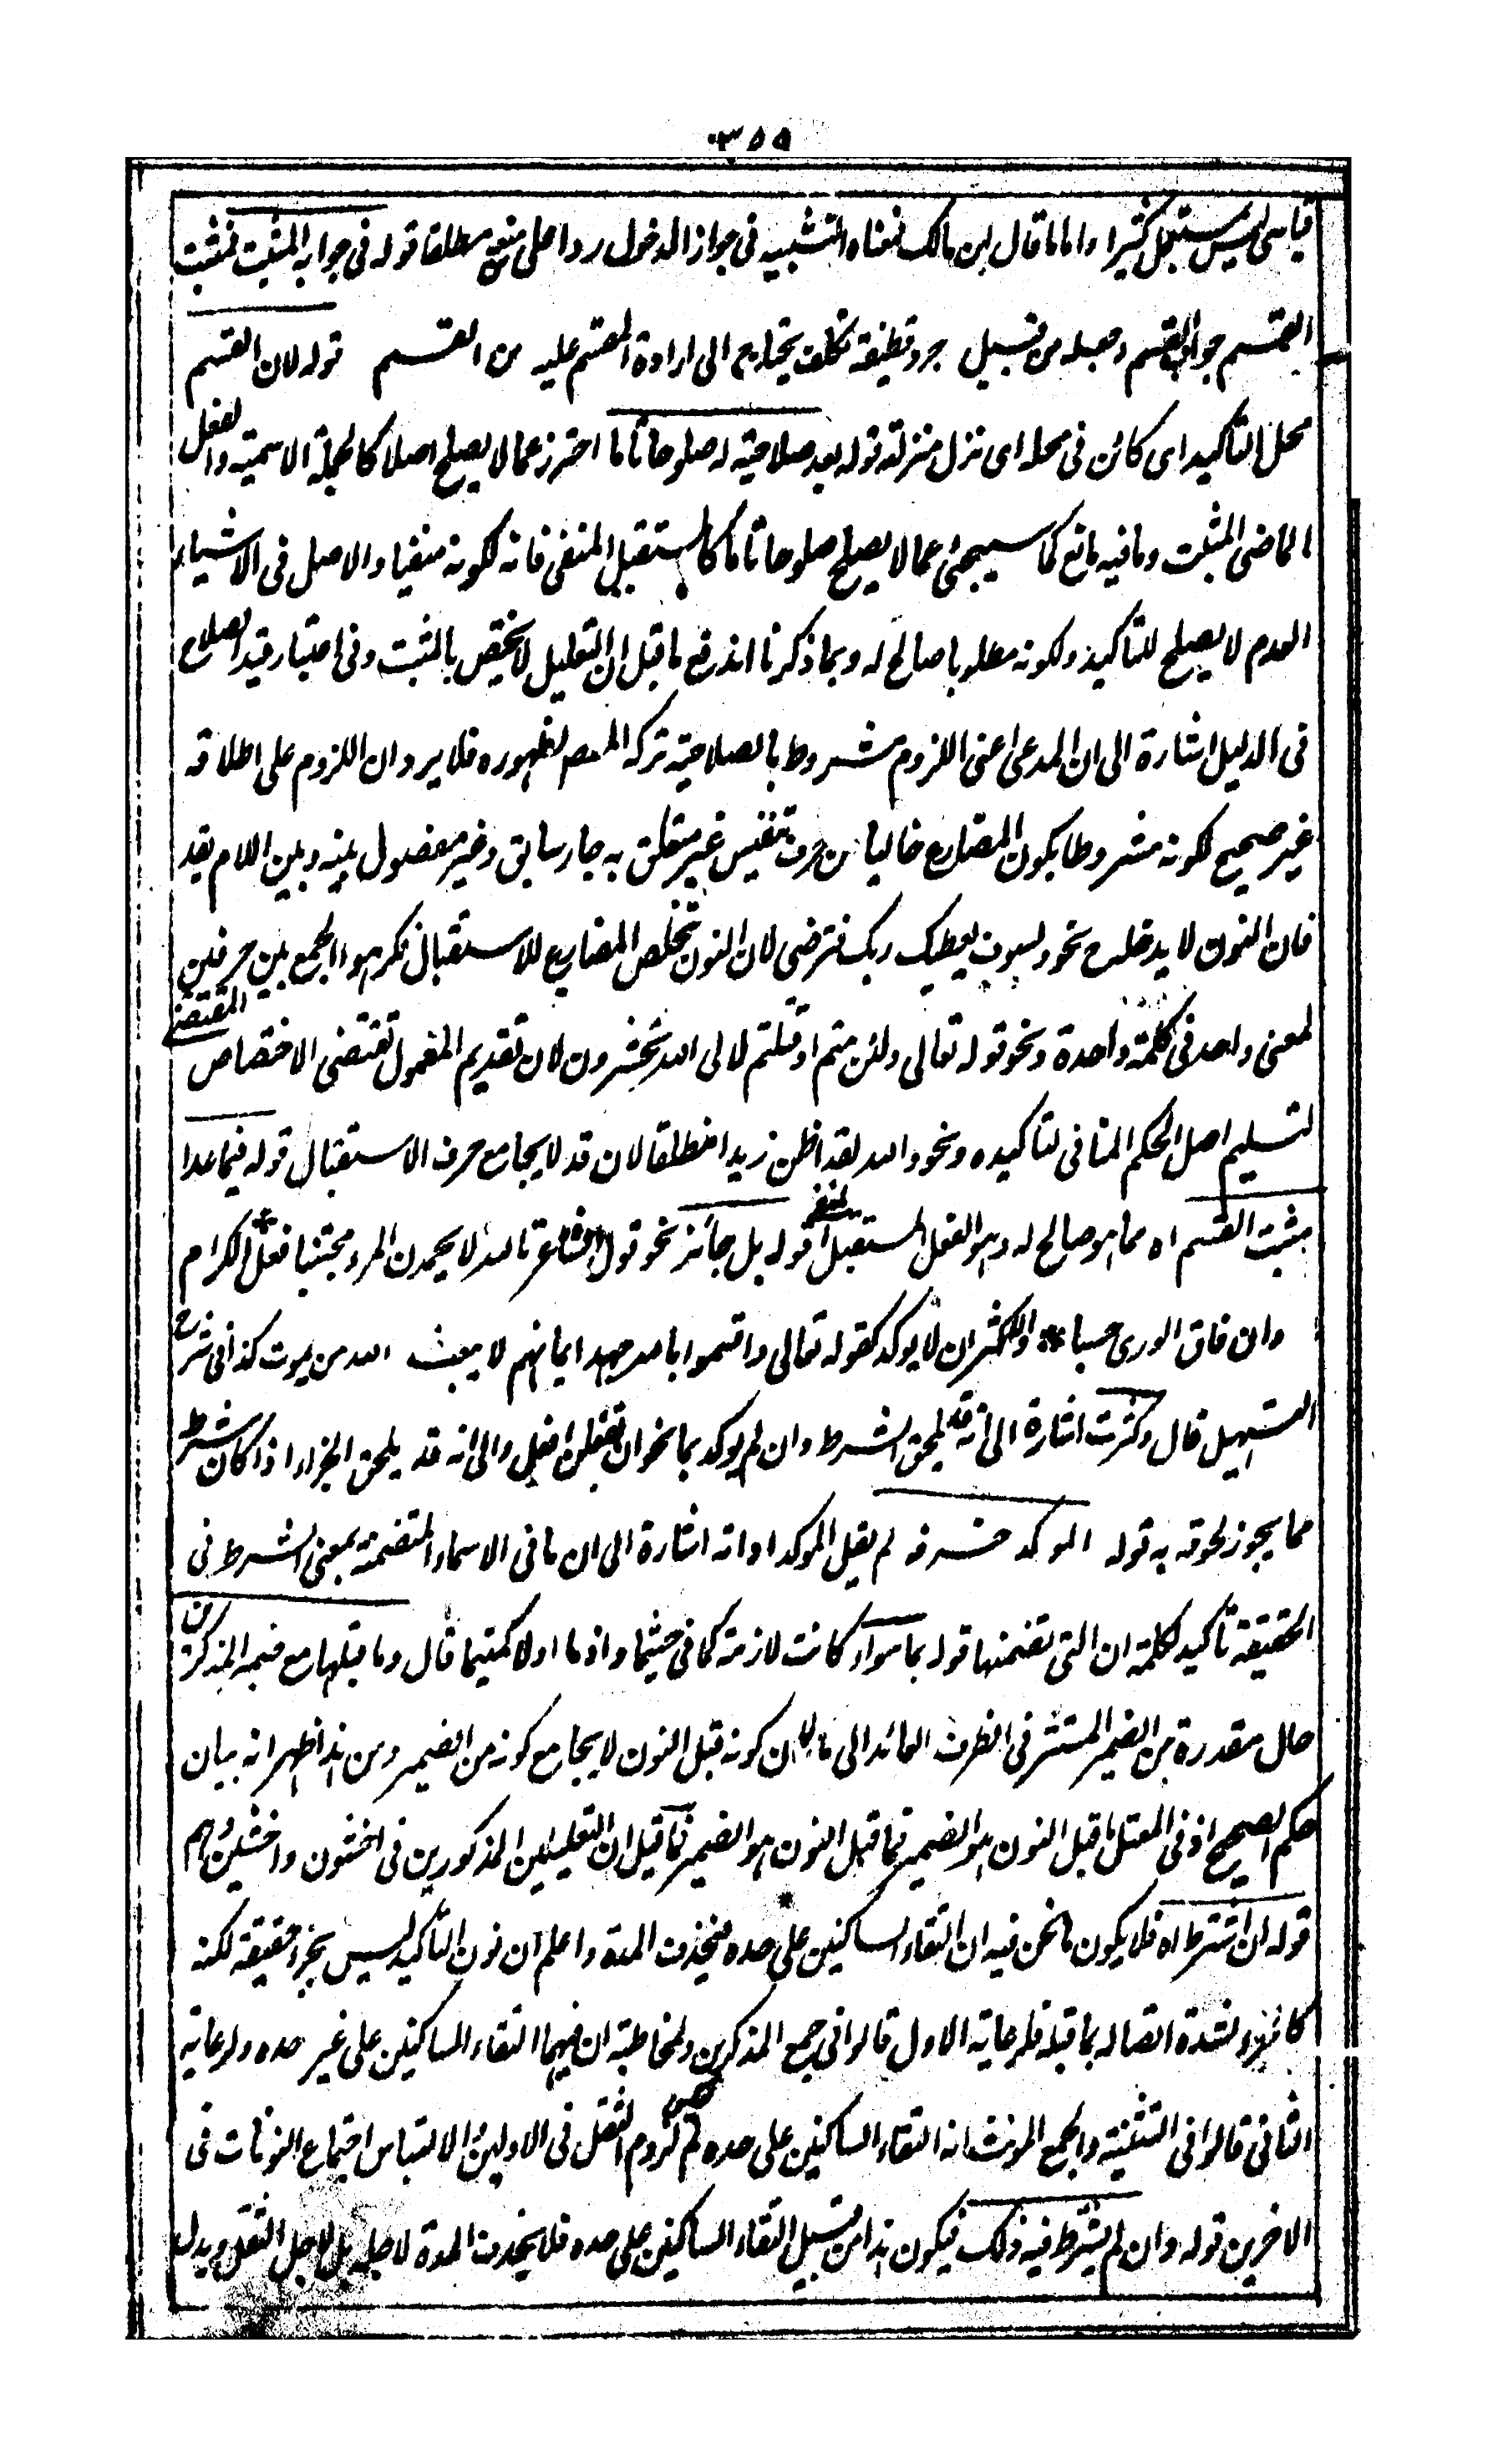 ٣٥٥
قياسى ليس يستعمل كثيرا واما ما قال ابن مالك فمعناه التشبيه فى جواز الدخول ردا على منعه مطلقا قوله فى جوابه المثبت فمثبت
القسم جواب القسم وجعله من قبيل جرد قطيفة تكلف يحتاج الى ارادة المقسم عليه من القسم قوله لان القسم
محل التأكيد اى كائن فى محله اى نزل منزلته قوله بعد صلاحيته له صلوحا تاما احترز عما لا يصلح اصلا كالجملة الاسمية والفعل
الماضى المثبت وما فيه مانع كما سيجئ عما لا يصلح صلوحا تاما كالمستقبل المنفى فانه لكونه منفيا والاصل فى الاشياء
العدم لا يصلح للتأكيد ولكونه مطلوبا صالح له وبما ذكرنا اندفع ما قيل ان التعليل لا يختص بالمثبت وفى اعتبار قيد الصلاح
فى الدليل اشارة الى ان المدعى اعنى اللزوم مشروط بالصلاحية تركه المصم لظهوره فلا يرد ان اللزوم على اطلاقه
غير صحيح لكونه مشروطا بكون المضارع خاليا من حرف تنفيس غير متعلق به جار سابق وغير مفصول بينه وبين اللام بقد
فان النون لا يدخل فى نحو لسوف يعطيك ربك فترضى لان النون تخلص المضارع للاستقبال فكرهوا الجمع بين حرفين
لمعنى واحد فى كلمة واحدة ونحو قوله تعالى ولئن متم او قتلتم لالى الله تحشرون لان تقديم المعمول تقتضى الاختصاص المقتضى
لتسليم اصل الحكم المنافى لتأكيده ونحو والله لقد اظن زيدا منطلقا لان قد لا يجامع حرف الاستقبال قوله فيما عدا
مثبت القسم اه مما هو صالح له وهو الفعل المستقبل المنفى قوله بل جائز نحو قول الشاعر تالله لا يحمدن المرء مجتنبا فعل الكرام
وان فاق الورى حسبا * والاكثر ان لا يوكد كقوله تعالى واقسموا بالله جهد ايمانهم لا يبعث الله من يموت كذا فى شرح
التسهيل قال وكثرت اشارة الى انه قد يلحق الشرط وان لم يوكد بما نحو ان تفعلن افعل والى انه قد يلحق الجزاء اذا كان شرط
مما يجوز لحوقه به قوله الموكد حرفه لم يقل الموكد اداته اشارة الى ان ما فى الاسماء المتضمنة بمعنى الشرط فى
الحقيقة تأكيد لكلمة ان التى تضمنها قوله بما سواء كانت لازمة كما فى حيثما واذما اولا كمتيما قال وما قبلها مع ضمير المذكرين
حال مقدرة من الضمير المستتر فى الظرف العائد الى ما لان كونه قبل النون لا يجامع كونه من الضمير ومن هذا ظهر انه بيان
حكم الصحيح اذ فى المعتل ما قبل النون هو الضمير فما قبل النون هو الضمير فما قيل ان التعليلين المذكورين فى اخشون واخشين وهم
قوله ان اشترط اه فلا يكون ما نحن فيه ان التقاء الساكنين على حده فيحذف المدة واعلم ان نون التأكيد ليس بجزء حقيقة لكنه
كالجزء لشدة اتصاله بما قبله فلرعاية الاول قالوا فى جمع المذكرين والمخاطبة ان فيهما التقاء الساكنين على غير حده ولرعاية
الثانى قالوا فى التثنية والجمع المونث انه التقاء الساكنين على حده لزوم الثقل فى الاولين والالتباس اجتماع النونات فى
الاخرين قوله وان لم يشترط فيه ذلك فيكون هذا من قبيل التقاء الساكنين على حده فلا يحذف المدة لاجله بل لاجل الثقل ويدل